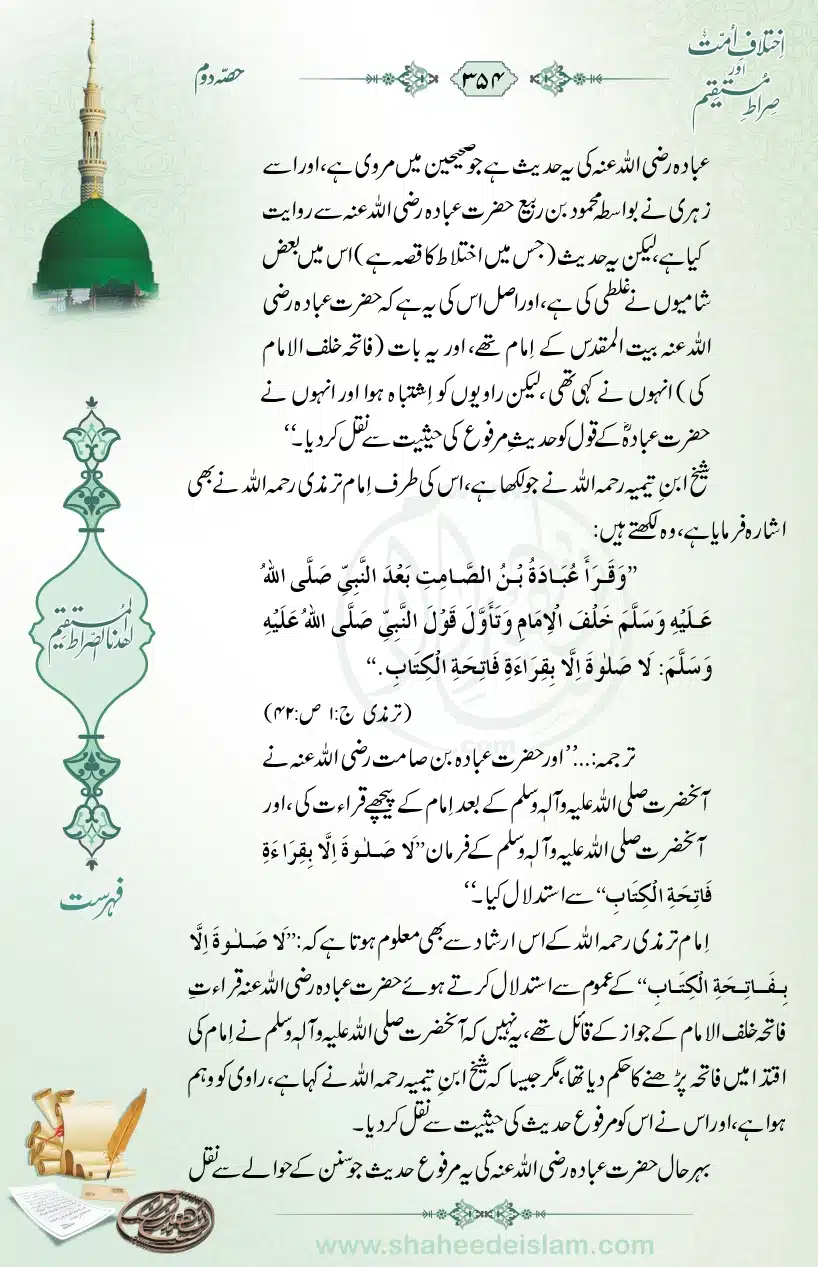 اِختلافِ اُمّت
اور
صراطِ مستقیم
۳۵۴
حصّہ دوم
عبادہ رضی اللہ عنہ کی یہ حدیث ہے جو صحیحین میں مروی ہے، اور اسے
زہری نے بواسطہ محمود بن ربیع حضرت عبادہ رضی اللہ عنہ سے روایت
کیا ہے، لیکن یہ حدیث (جس میں اختلاط کا قصہ ہے) اس میں بعض
شامیوں نے غلطی کی ہے، اور اصل اس کی یہ ہے کہ حضرت عبادہ رضی
اللہ عنہ بیت المقدس کے اِمام تھے، اور یہ بات (فاتحہ خلف الامام
کی) انہوں نے کہی تھی، لیکن راویوں کو اِشتباہ ہوا اور انہوں نے
حضرت عبادہؓ کے قول کو حدیثِ مرفوع کی حیثیت سے نقل کردیا۔‘‘
شیخ ابنِ تیمیہ رحمہ اللہ نے جو لکھا ہے، اس کی طرف اِمام ترمذی رحمہ اللہ نے بھی
اشارہ فرمایا ہے، وہ لکھتے ہیں:
’’وَقَرَأَ عُبَادَةُ بْنُ الصَّامِتِ بَعْدَ النَّبِيِّ صَلَّى اللهُ
عَلَيْهِ وَسَلَّمَ خَلْفَ الْاِمَامِ وَتَأَوَّلَ قَوْلَ النَّبِيِّ صَلَّى اللهُ عَلَيْهِ
وَسَلَّمَ: لَا صَلٰوةَ اِلَّا بِقِرَاءَةِ فَاتِحَةِ الْكِتَابِ.‘‘
(ترمذی ج:۱ ص:۴۲)
ترجمہ:...’’اور حضرت عبادہ بن صامت رضی اللہ عنہ نے
آنحضرت صلی اللہ علیہ وآلہ وسلم کے بعد اِمام کے پیچھے قراءت کی، اور
آنحضرت صلی اللہ علیہ وآلہ وسلم کے فرمان ’’لَا صَلٰوةَ اِلَّا بِقِرَاءَةِ
فَاتِحَةِ الْكِتَابِ‘‘ سے استدلال کیا۔‘‘
اِمام ترمذی رحمہ اللہ کے اس ارشاد سے بھی معلوم ہوتا ہے کہ: ’’لَا صَلٰوةَ اِلَّا
بِفَاتِحَةِ الْكِتَابِ‘‘ کے عموم سے استدلال کرتے ہوئے حضرت عبادہ رضی اللہ عنہ قراءتِ
فاتحہ خلف الامام کے جواز کے قائل تھے، یہ نہیں کہ آنحضرت صلی اللہ علیہ وآلہ وسلم نے اِمام کی
اقتدا میں فاتحہ پڑھنے کا حکم دیا تھا، مگر جیسا کہ شیخ ابنِ تیمیہ رحمہ اللہ نے کہا ہے، راوی کو وہم
ہوا ہے، اور اس نے اس کو مرفوع حدیث کی حیثیت سے نقل کردیا۔
بہرحال حضرت عبادہ رضی اللہ عنہ کی یہ مرفوع حدیث جو سنن کے حوالے سے نقل
اھدنا الصراط المستقیم
فہرست
www.shaheedeislam.com